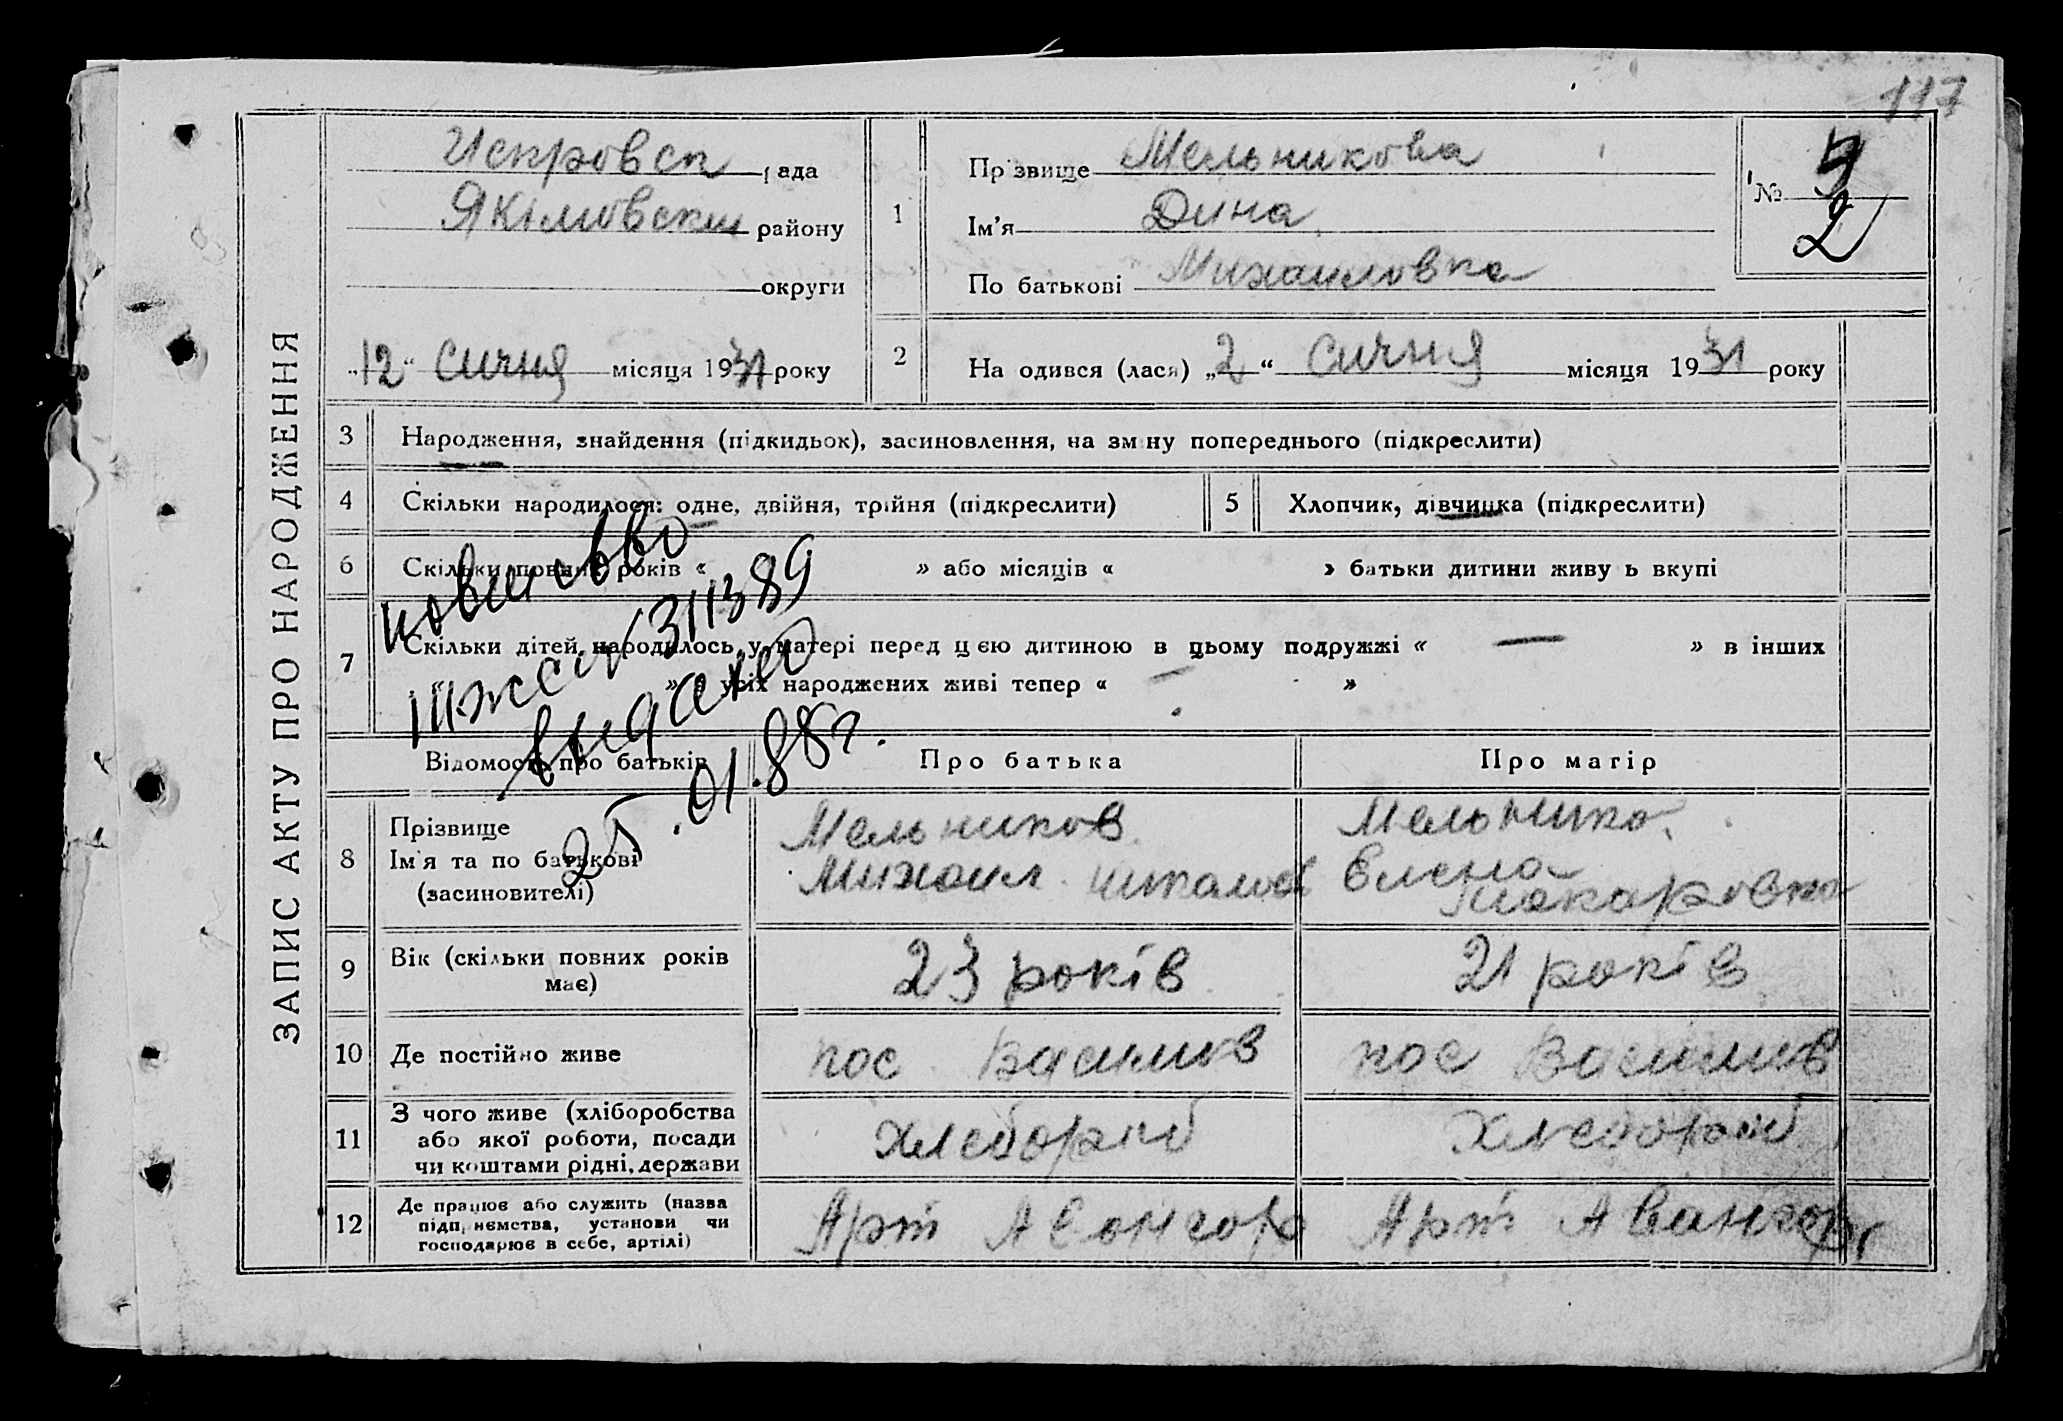 117
ЗАПИС АКТУ ПРО НАРОДЖЕННЯ
рада
Якімовскш району
округи
„12“ Січня місяця 1931 року
1
Прізвище Мельникова
Ім'я Дина
По батькові Михаиловна
№ 2
2
На одився (лася) „2“ Січня місяця 1931 року
3 Народження, знайдення (підкидьок), засиновлення, на зміну попереднього (підкреслити)
4 Скільки народилося: одне, двійня, трійня (підкреслити)
5 Хлопчик, дівчинка (підкреслити)
6 Скільки повних років « » або місяців « » батьки дитини живуть вкупі
7 Скільки дітей народилось у матері перед цією дитиною в цьому подружжі « — » в інших
» з усіх народжених живі тепер « — »
311389
25.01.88г.
Відомості про батьків
Про батька
Про матір
8 Прізвище
Ім'я та по батькові
(засиновителі)
Мельников
Михаил
Мельнико
Елена
Макаровна
9 Вік (скільки повних років
має)
23 років
21 років
10 Де постійно живе
пос Василив
пос Василив
11 З чого живе (хліборобства
або якої роботи, посади
чи коштами рідні, держави
Хлебороб
Хлебороб
12 Де працює або служить (назва
підприємства, установи чи
господарює в себе, артілі)
Арт Авангард
Арт Авангард